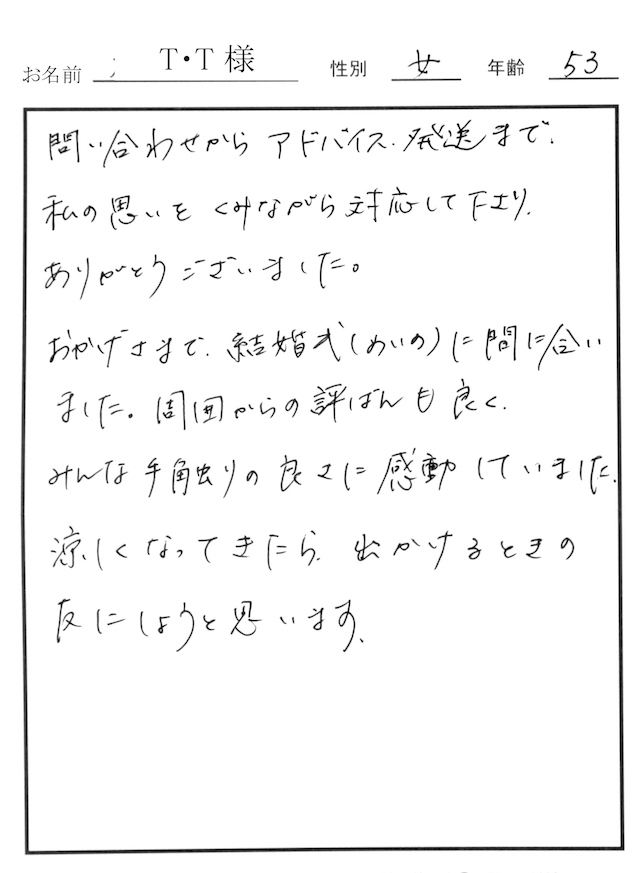 お名前 T・T 様 性別 女 年齢 53
問い合わせから アドバイス、発送まで、
私の思いを くみながら 対応して下さり、
ありがとうございました。
おかげさまで、結婚式(めいの)に間に合い
ました。周囲からの評ばんも良く、
みんな手触りの良さに感動していました。
涼しくなってきたら、出かけるときの
友にしようと思います。